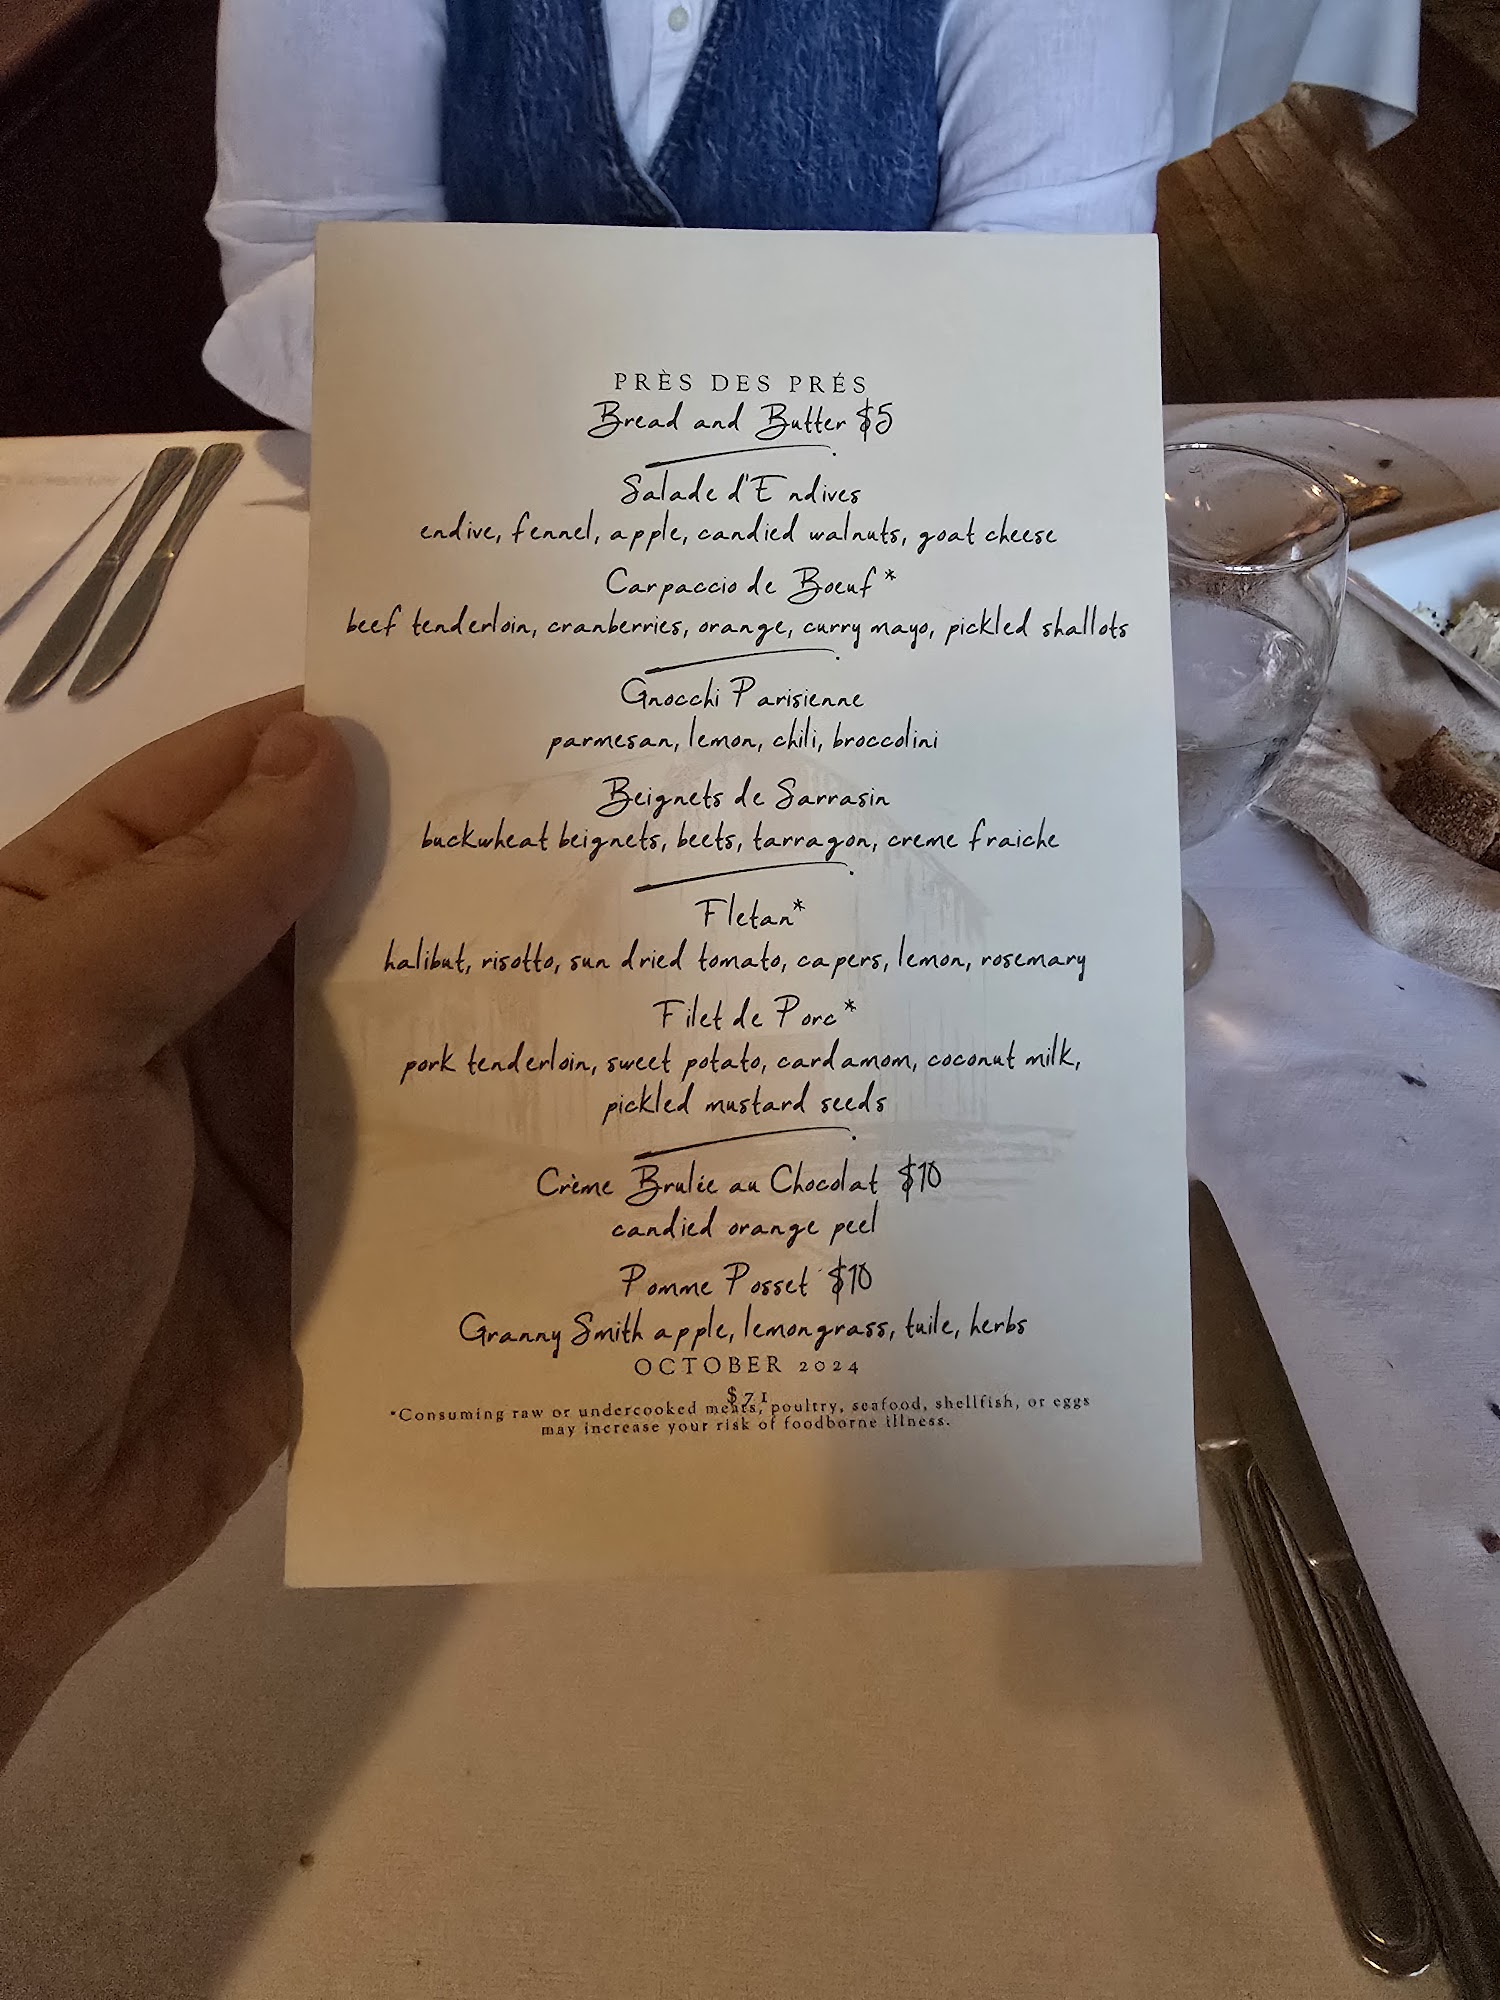 PRÈS DES PRÉS
Bread and Butter $5
Salade d'Endives
endive, fennel, apple, candied walnuts, goat cheese
Carpaccio de Boeuf*
beef tenderloin, cranberries, orange, curry mayo, pickled shallots
Gnocchi Parisienne
parmesan, lemon, chili, broccolini
Beignets de Sarrasin
buckwheat beignets, beets, tarragon, creme fraiche
Fletan*
halibut, risotto, sun dried tomato, capers, lemon, rosemary
Filet de Porc*
pork tenderloin, sweet potato, cardamom, coconut milk,
pickled mustard seeds
Crème Brulée au Chocolat $10
candied orange peel
Pomme Posset $10
Granny Smith apple, lemongrass, tuile, herbs
OCTOBER 2024
$71
*Consuming raw or undercooked meats, poultry, seafood, shellfish, or eggs
may increase your risk of foodborne illness.